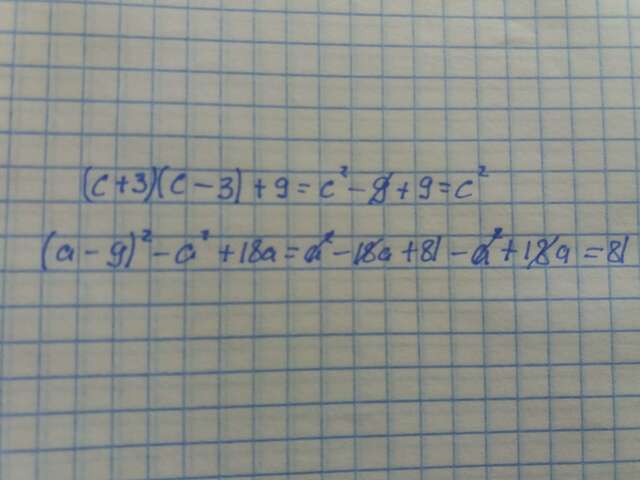 (c+3)(c-3)+9=c²-9+9=c²
(a-9)²-a²+18a=a²-18a+81-a²+18a=81